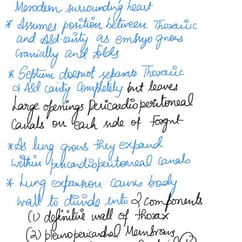 Mesoderm surrounding heart
* Assumes position between Thoracic
and Abd cavity as embryo grows
Cranially and folds
* Septum does not separate Thoracic
& Abd cavity Completely but leaves
Large openings Pericardioperitoneal
Canals on each side of foregut
* As lung grows they expand
within pericardioperitoneal canals
* Lung expansion causes body
wall to divide into 2 components
(1) definitive wall of thorax
(2) pleuropericardial Membrane